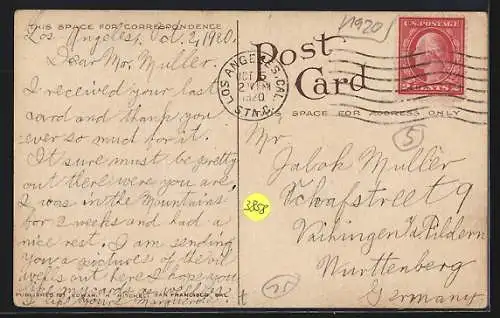 THIS SPACE FOR CORRESPONDENCE
Los Angeles, Oct. 2, 1920.
Dear Mr. Muller.
I received your last
card and thank you
ever so much for it.
It sure must be pretty
out there were you are.
I was in the Mountains
for 2 weeks and had a
nice rest. I am sending
you a pictures of the oil
wells out here I hope you
like my card as well as
I like yours Marguerite
PUBLISHED BY EDWARD H. MITCHELL SAN FRANCISCO, CAL.
Post
Card
THIS SPACE FOR ADDRESS ONLY
(1920)
U.S. POSTAGE
2 CENTS 2
LOS ANGELES, CAL.
OCT
1920
STA. C.
5
3858
Mr
Jakob Müller
Schafstreet 9
Vaihingen a/d Fildern
Württenberg
Germany